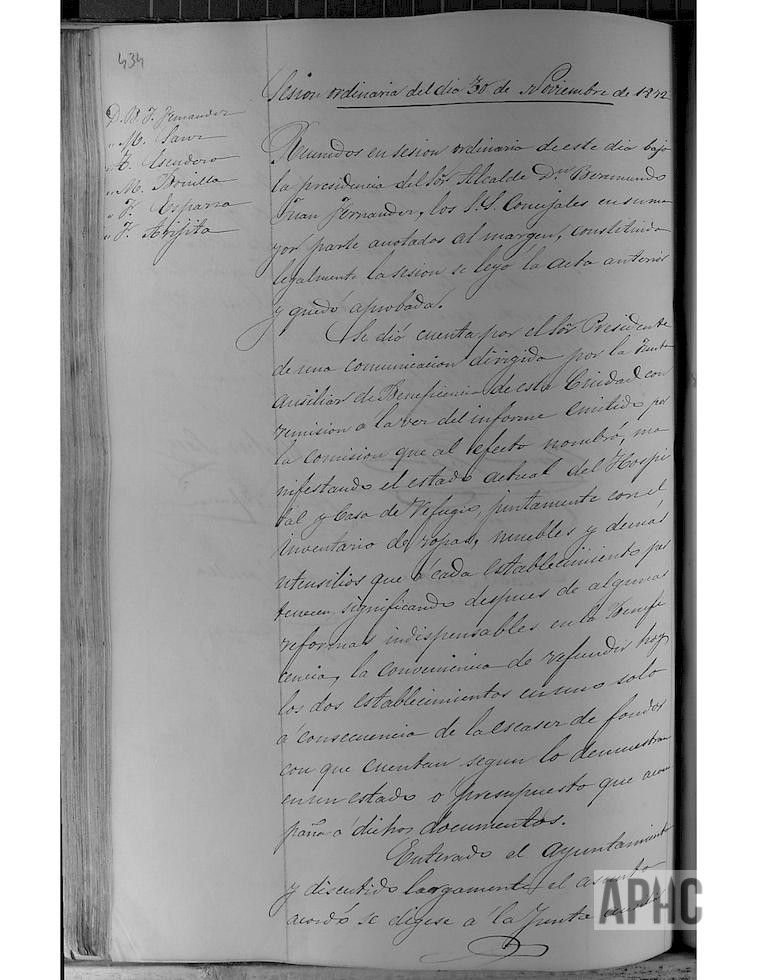 434
Sesion ordinaria del dia 30 de Noviembre de 1872
D. B. J. Fernandez
" M. Sanz
" A. Escudero
" M. Bonilla
" F. Esparza
" F. Arijita
Reunidos en sesion ordinaria de este dia bajo
la presidencia del Sor Alcalde Dn Beremundo
Juan Fernandez, los S.S. Concejales en su ma
yor parte anotados al margen, constituida
legalmente la sesion se leyó la acta anterior
y quedó aprobada.
Se dió cuenta por el Sor Presidente
de una comunicacion dirigida por la Junta
Auxiliar de Beneficencia de esta Ciudad con
remision a la vez del informe emitido por
la comision que al efecto nombró, ma
nifestando el estado actual del Hospi
tal y Casa de Refugio juntamente con el
inventario de ropas, muebles y demás
utensilios que a cada establecimiento per
tenecen, significando despues de algunas
reformas indispensables en la Benefi
cencia, la conveniencia de refundir hoy
los dos establecimientos en uno solo
á consecuencia de la escasez de fondos
con que cuentan segun lo demuestran
en un estado o presupuesto que acom
paña a dichos documentos.
Enterado el Ayuntamiento
y discutido largamente el asunto
acordó se digese a la Junta
APHC